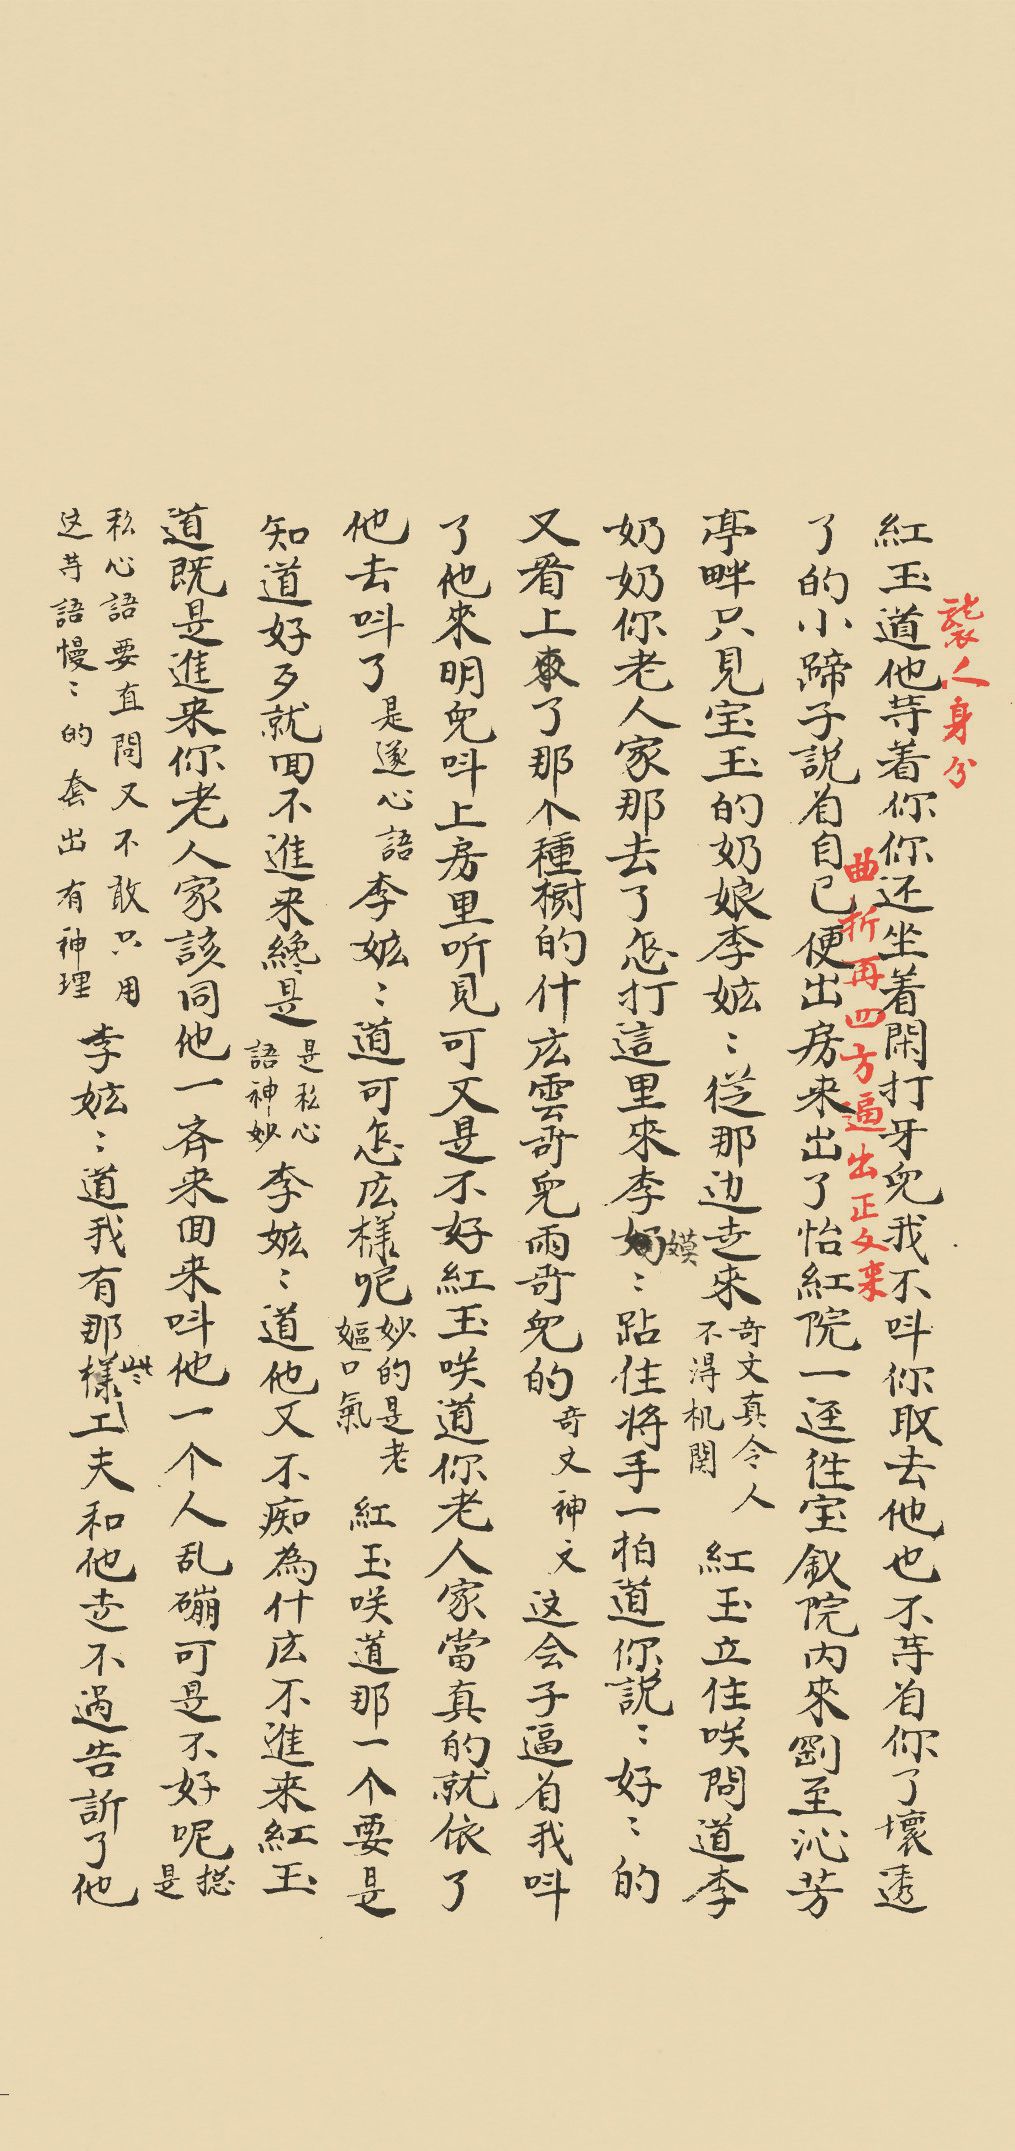 襲人身分
紅玉道他荨着你你还坐着閑打牙兒我不呌你取去他也不荨着你了壞透
曲折再四方逼出正文来
了的小蹄子説着自己便出房来出了怡紅院一逕徃宝釵院内來劉至沁芳
亭畔只見宝玉的奶娘李嫫〻從那边走來
奇文真令人
不淂机関
紅玉立住咲問道李
奶奶你老人家那去了怎打這里來李嫫〻跕住將手一拍道你説〻好〻的
又看上來了那个種樹的什庅雲哥兒雨哥兒的
奇文神文
这会子逼着我呌
了他來明兒呌上房里听見可又是不好紅玉咲道你老人家當真的就依了
他去呌了
是遂心語
李嫫〻道可怎庅樣呢
妙的是老
嫗口氣
紅玉咲道那一个要是
知道好歹就囬不進来纔是
是私心
語神妙
李嫫〻道他又不痴為什庅不進来紅玉
道既是進来你老人家該同他一斉来囬来呌他一个人乱磞可是不好呢
捴是
私心語要直問又不敢只用
这荨語慢〻的套出有神理
李嫫〻道我有那樣工夫和他走不過告訴了他